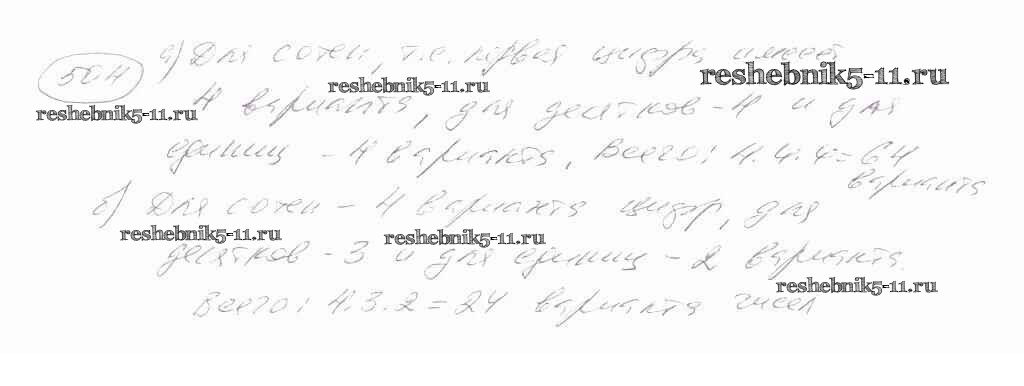 504
а) Для сотен, т.е. первая цифра имеет
reshebnik5-11.ru
reshebnik5-11.ru
reshebnik5-11.ru
4 варианта, для десятков - 4 и для
единиц - 4 варианта, Всего: 4.4.4=64
варианта
б) Для сотен - 4 варианта цифр, для
reshebnik5-11.ru
reshebnik5-11.ru
десятков - 3 и для единиц - 2 варианта.
reshebnik5-11.ru
Всего: 4.3.2=24 варианта чисел